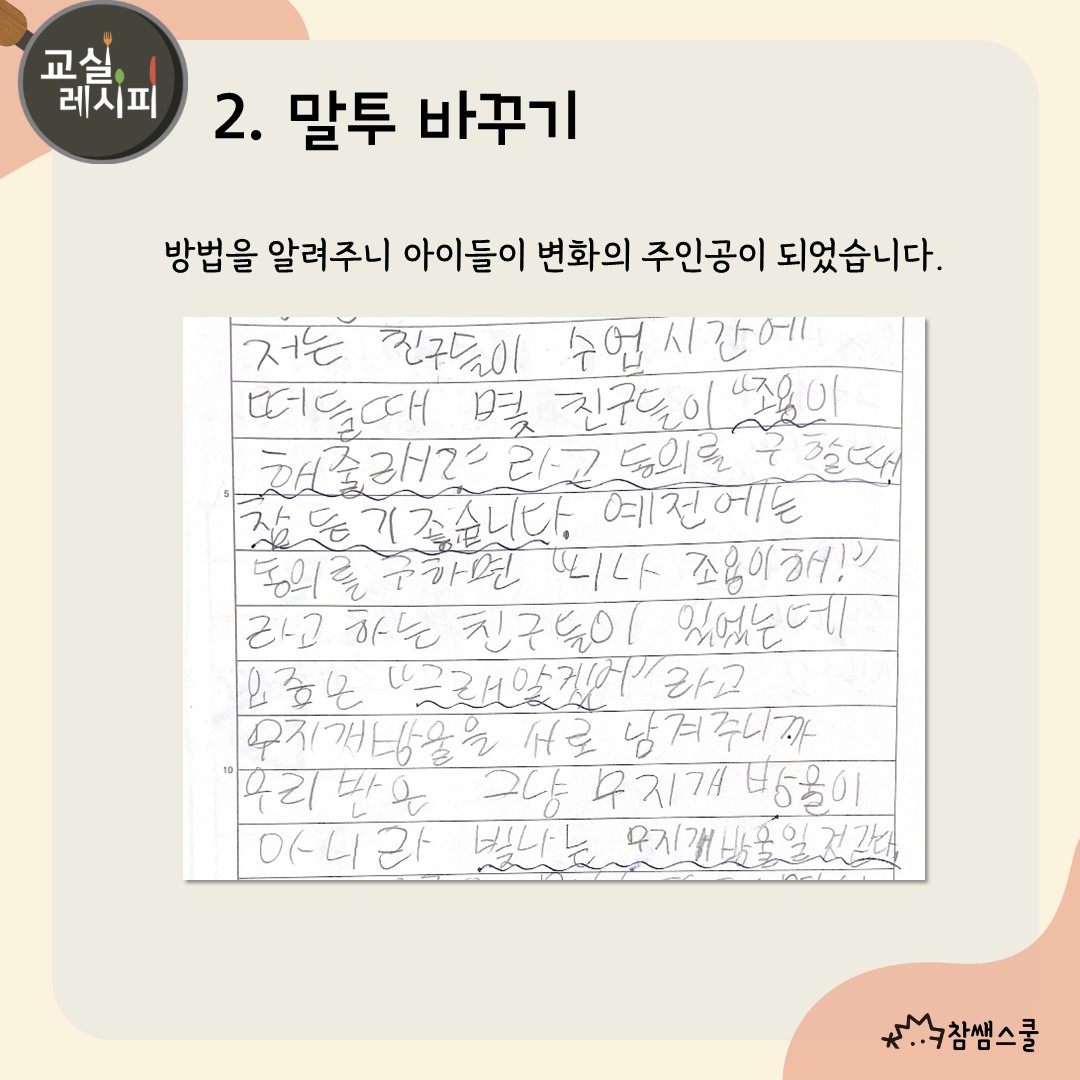 교실
레시피
2. 말투 바꾸기
방법을 알려주니 아이들이 변화의 주인공이 되었습니다.
저는 친구들이 수업 시간에
떠들때 몇 친구들이 "조용이
해줄래?" 라고 동의를 구 할때
5
참 듣기 좋습니다. 예전에는
동의를 구하면 "너나 조용이해!"
라고 하는 친구들이 있었는데
요즘은 "그래알겠어"라고
무지개방울을 서로 남겨주니까
10
우리 반은 그냥 무지개 방울이
아니라 빛나는 무지개방울일것같다.
참쌤스쿨